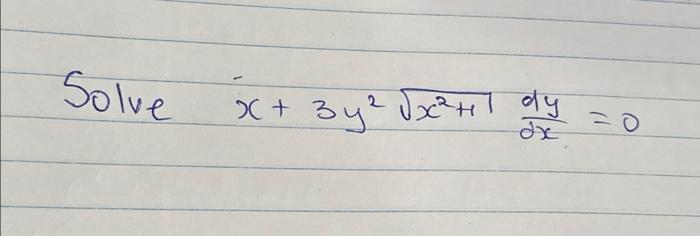 Solve x + 3y² √(x²+1) dy/dx = 0